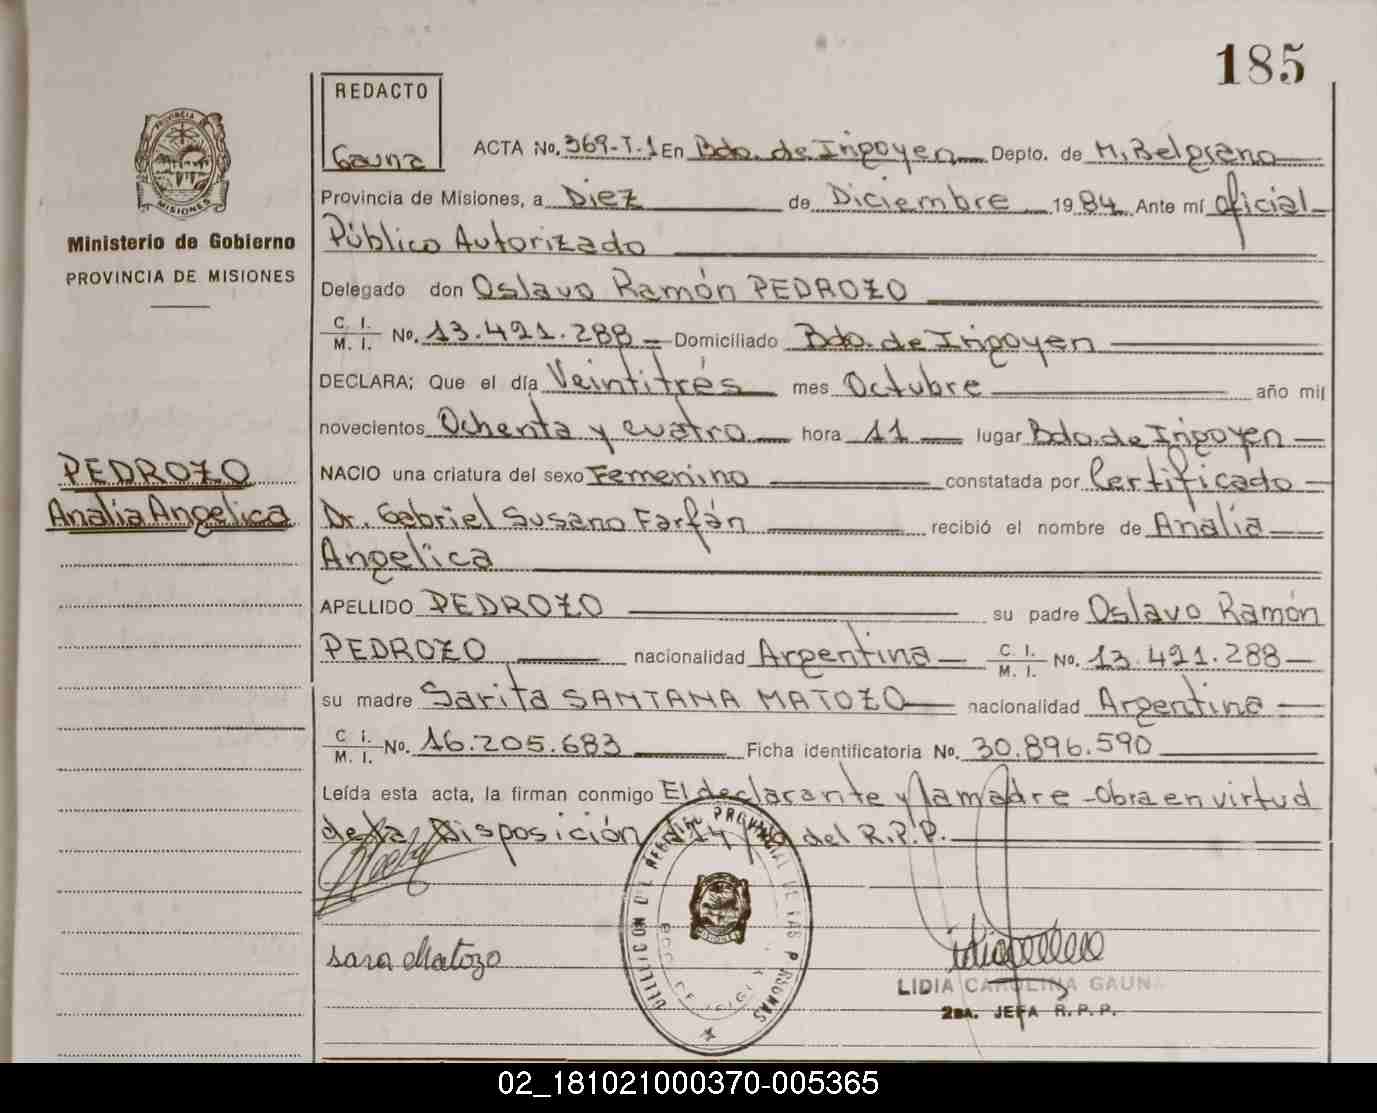 185
REDACTO
Gauna
PROVINCIA
MISIONES
Ministerio de Gobierno
PROVINCIA DE MISIONES
PEDROZO
Analía Angelica
ACTA No. 369-T-1 En Bdo. de Irigoyen Depto. de M. Belgrano
Provincia de Misiones, a Diez de Diciembre 1984 Ante mí Oficial
Público Autorizado
Delegado don Oslavo Ramón PEDROZO
C. I.
M. I. No. 13.421.288 Domiciliado Bdo. de Irigoyen
DECLARA; Que el día Veintitrés mes Octubre año mil
novecientos Ochenta y cuatro hora 11 lugar Bdo. de Irigoyen
NACIO una criatura del sexo Femenino constatada por Certificado
Dr. Gabriel Susano Farfán recibió el nombre de Analía
Angelica
APELLIDO PEDROZO su padre Oslavo Ramón
PEDROZO nacionalidad Argentina C. I. M. I. No. 13.421.288
su madre Sarita SANTANA MATOZO nacionalidad Argentina
C. I.
M. I. No. 16.205.683 Ficha identificatoria No. 30.896.590
Leída esta acta, la firman conmigo El declarante y la madre - Obra en virtud
de la Disposición 14 del R.P.P.
Sara Matozo
REGISTRO PROVINCIAL DE LAS PERSONAS
LIDIA CAROLINA GAUNA
2DA. JEFA R. P. P.
02_181021000370-005365